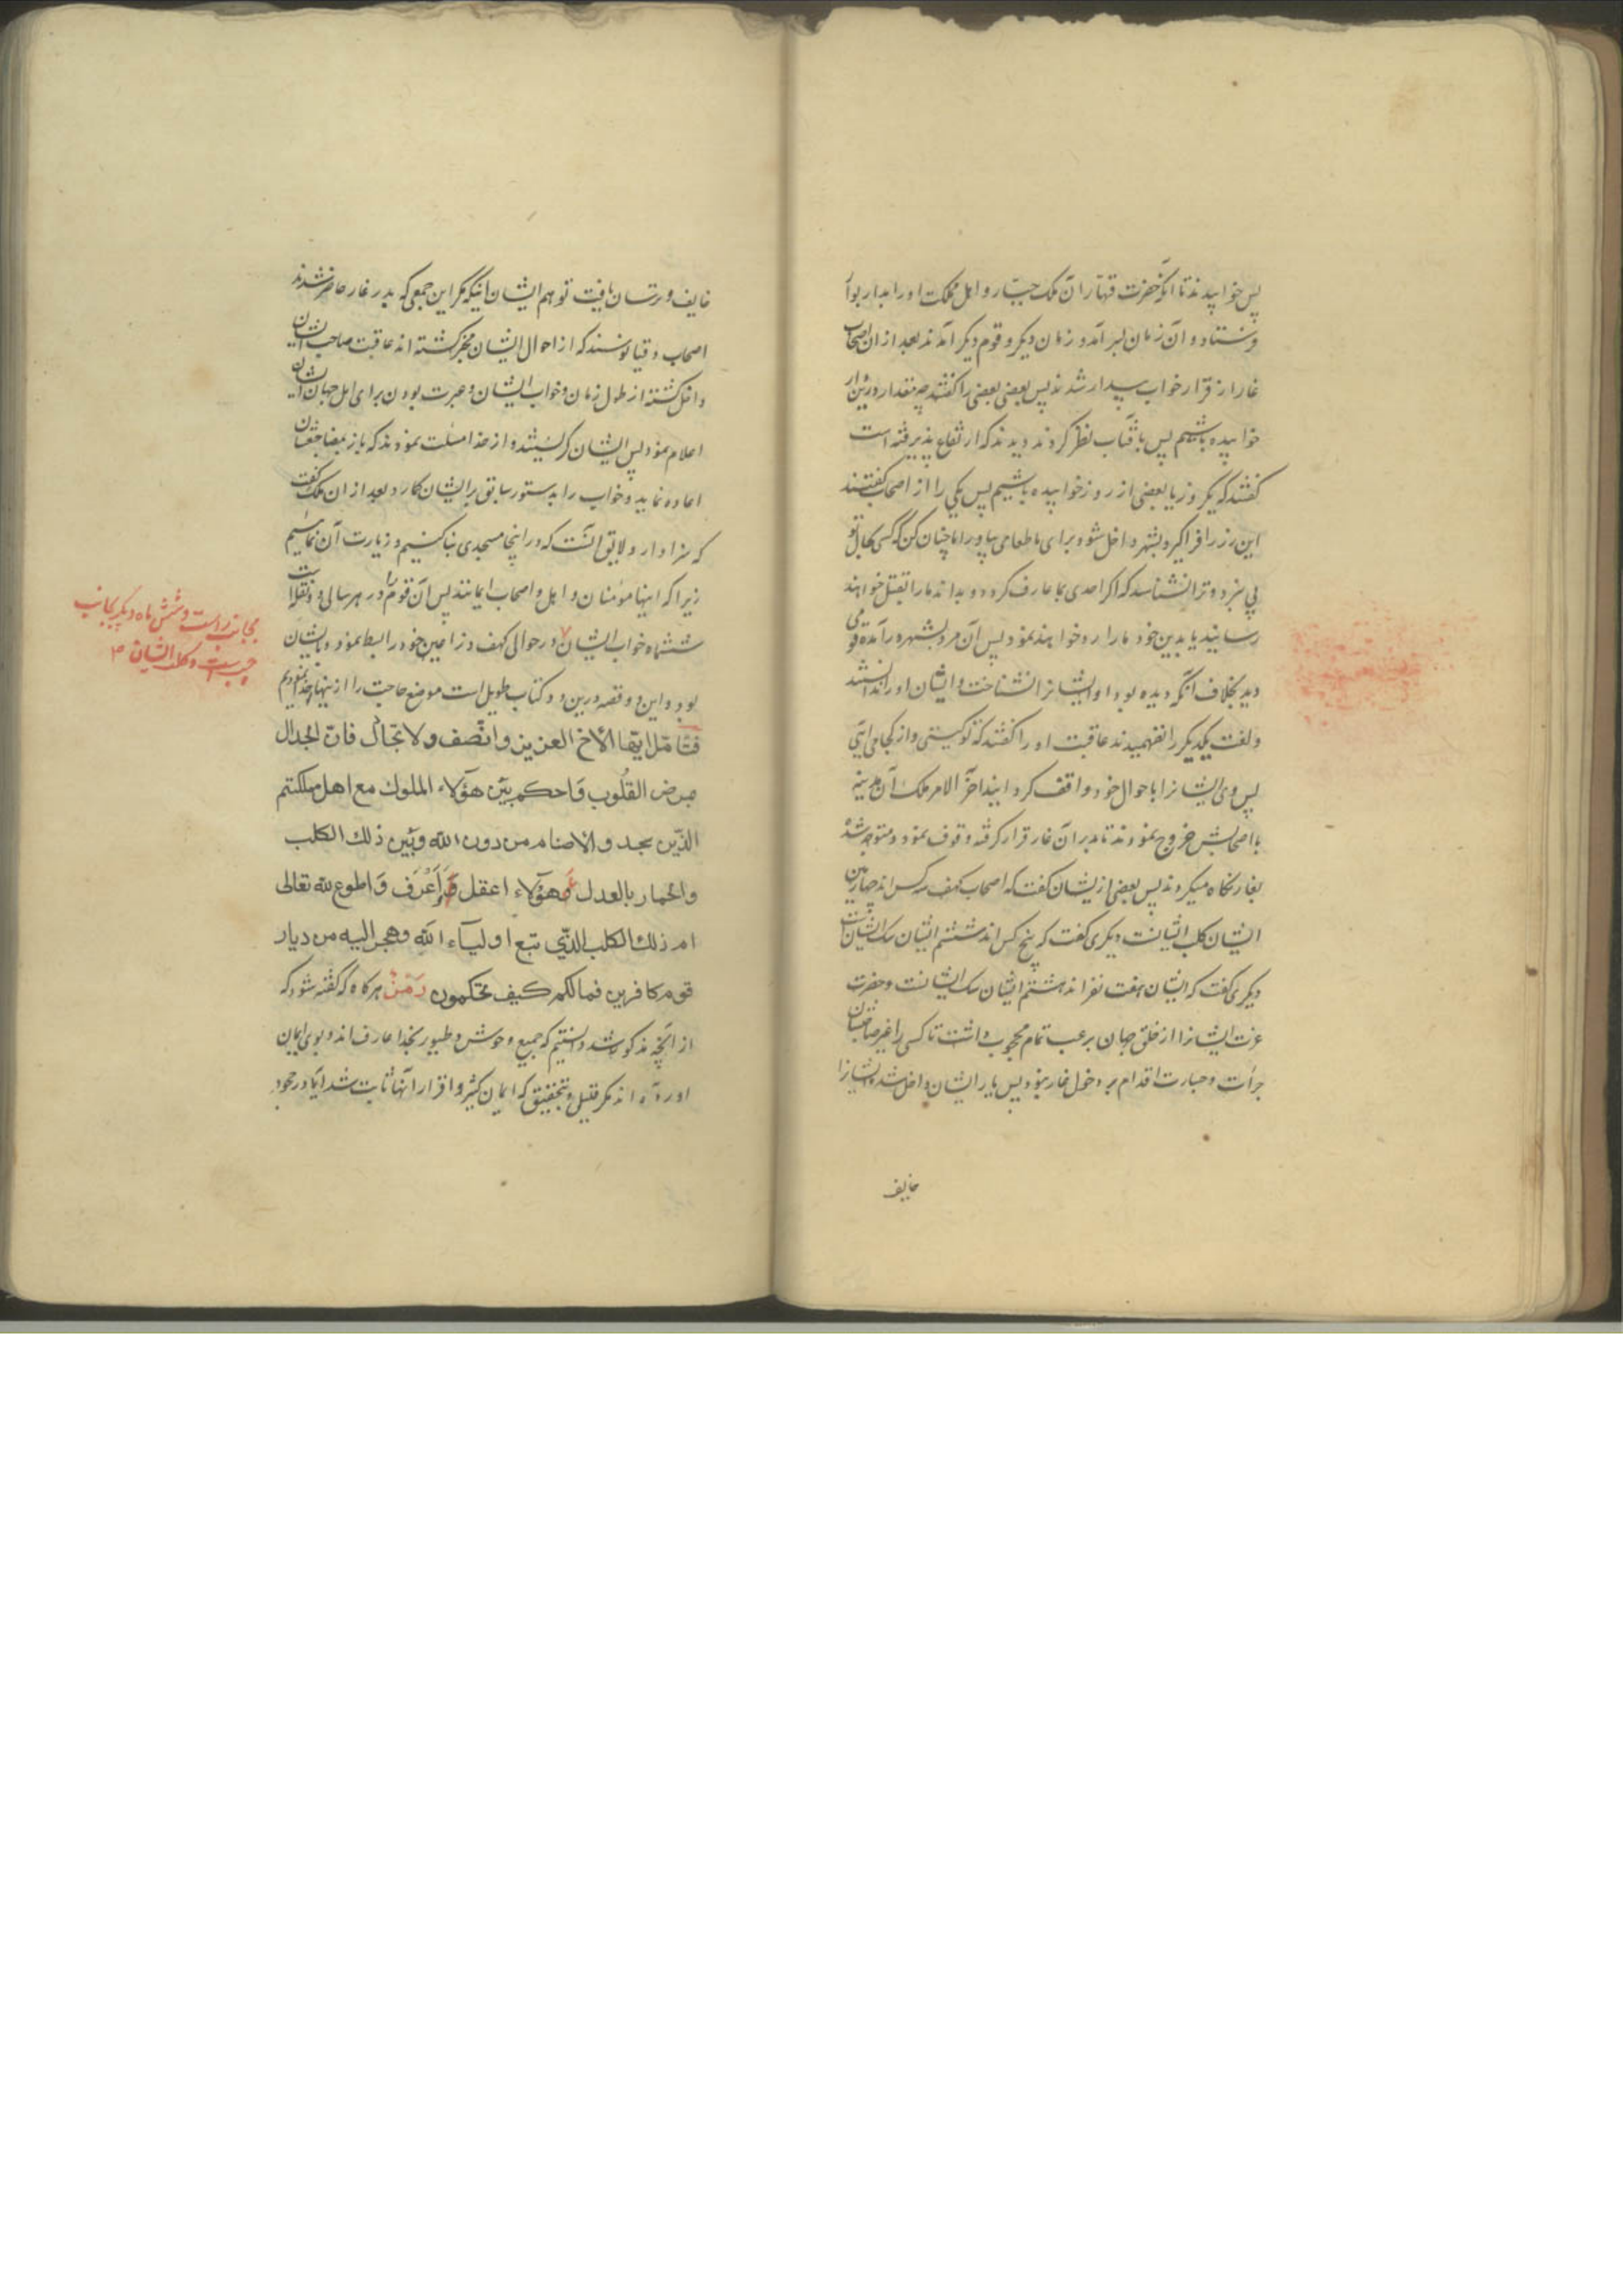 پس خوابیدند تا آنکه حضرت قهار آن ملک جبّار و اهل مملکت او را بدار بوار
فرستاد و آن زمان بسر آمد و زمان دیگر و قوم دیگر آمدند بعد از ان اصحاب
غار از قرار خواب بیدار شدند پس بعضی بعضی را گفتند چه مقدار درین غار
خوابیده باشیم پس بآفتاب نظر کردند دیدند که ارتفاع پذیرفته است
گفتند که یکروز یا بعضی از روز خوابیده باشیم پس یکی را از اصحاب گفتند
این زر را فرا گیر و بشهر داخل شو و برای ما طعامی بیاور اما چنان کن که کسی بحال تو
پی نبرد و ترا نشناسد که اگر احدی بما عارف گردد و بداند ما را بقتل خواهند
رسانید یا بدین خود ما را رد خواهند نمود پس آن مرد بشهر در آمد قومی
دید بخلاف آنکه دیده بود او ایشانرا نشناخت و ایشان او را ندانستند
و لغت یکدیگر را نفهمیدند عاقبت او را گفتند که تو کیستی و از کجا می آیی
پس وی ایشانرا باحوال خود واقف گردانید آخر الامر ملک آن مدینه
با اصحابش خروج نمودند تا بدر آن غار قرار گرفته وقوف نمود و متوجه شده
بغار نگاه میکردند پس بعضی از یشان گفت که اصحاب کهف سه کس اند چهارمین
ایشان کلب ایشانست دیگری گفت که پنج کس اند ششم ایشان سگ ایشانست
دیگری گفت که ایشان هفت نفر اند هشتم ایشان سگ ایشانست و حضرت
عزت ایشانرا از خلق جهان برعب تمام محجوب داشت تا کسی را غیر صاحبشان
جرأت و جسارت اقدام بر دخول غار نبود پس یار ایشان داخل شد و ایشانرا
خایف
خایف و ترسان یافت توهم ایشان اینکه مگر این جمعی که بدر غار حاضر شدند
اصحاب دقیانوسند که از احوال ایشان مخبر گشته اند عاقبت صاحب ایشان
داخل گشته از طول زمان و خواب ایشان و عبرت بودن برای اهل جهان ایشان
اعلام نمود پس ایشان گریستند و از خدا مسئلت نمودند که باز بمضاجعشان
اعاده نماید و خواب را بدستور سابق بر ایشان گمارد بعد از ان ملک گفت
که سزاوار و لایق آنست که در اینجا مسجدی بنا کنیم و زیارت آن نمائیم
زیرا که اینها مؤمنان و اهل و اصحاب ایمانند پس آن قوم را در هر سالی دو نقلابست
ششماه خواب ایشان در حوالی کهف ذراعین خود را بسط نموده بایشان
بود و این دو قصه درین دو کتاب طویل است موضع حاجت را از ینها اخذ نمودیم
فتأمّل ایّها الأخ العزیز وانّصف ولا تجادل فانّ الجدال
مرض القلُوب وَاحکم بَیْن هؤلاء الملوك مع اهل مملکتهم
الذّین یجدوالاصنام من دون اللّٰه وبَیْن ذلك الکلب
والحمار بالعدل أهؤلاء اعقل وَأَعْرَف وَاطوع للّٰه تعالی
ام ذلك الکلب الذّی تبع اولیآء اللّٰه وهجر الیه من دیار
قوم کافرین فمالکم کیف تحکمون رَمْزٌ هرگاه که گفته شود که
از آنچه مذکور شد دانستیم که جمیع وحوش و طیور بخدا عارف اند و بوی ایمان
آورده اند مگر قلیل و بتحقیق که ایمان کثیر و اقرار آنها ثابت شد آیا در جحود
بجانب راست و شش ماه دیگر بجانب
چپست و کلب ایشان